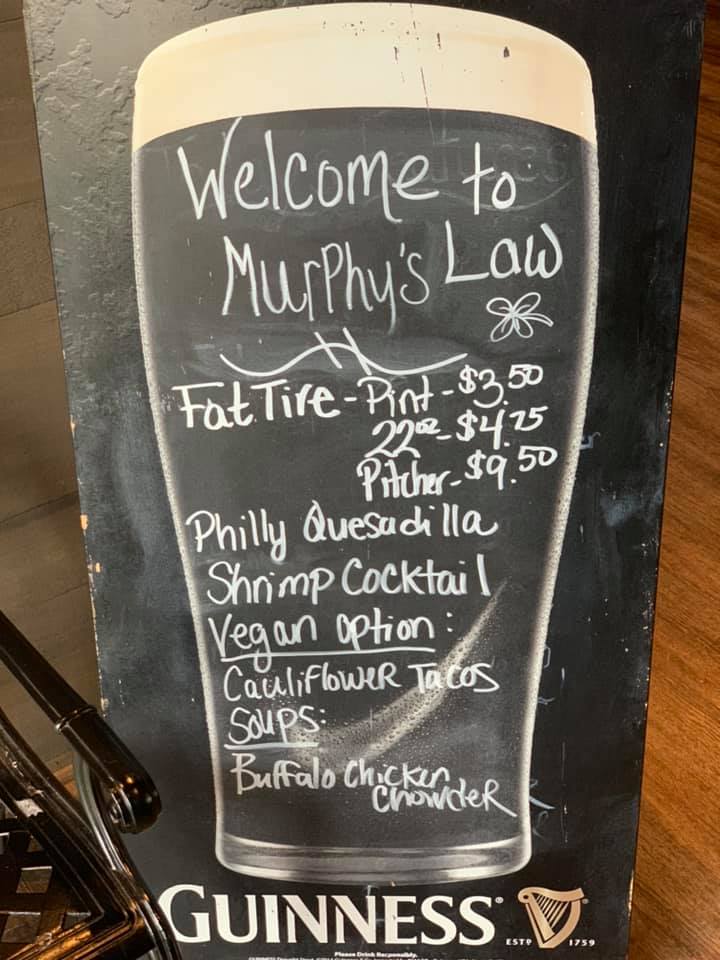 Welcome to
Murphy's Law
Fat Tire - Pint - $3.50
22oz - $4.75
Pitcher - $9.50
Philly Quesadilla
Shrimp Cocktail
Vegan Option:
Cauliflower Tacos
Soups:
Buffalo Chicken
Chowder
GUINNESS
ESTD 1759
Please Drink Responsibly.